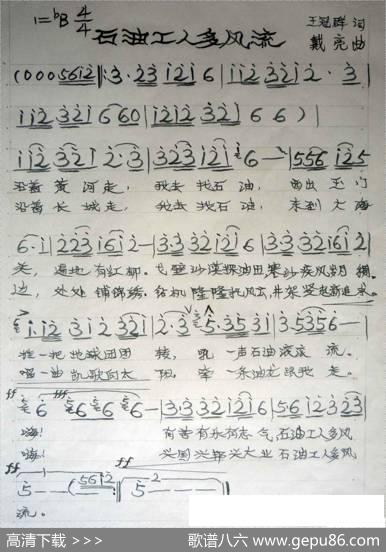 1=ᵇB 4/4
石油工人多风流
王冠群 词
戴亮 曲
(000 5612 |: 3·23 1216 | 112 3212·3 |
112 3216 660 | 1212 321266) |
112 3212·3 | 323 1216 — | 556 125
沿着黄河走, 我去找石油, 西出玉门
沿着长城走, 我去找石油, 来到大海
6·1 | 223 1612 — | 3·332 1216 | 3·332 1612 |
关, 遍地有红柳. 戈壁沙漠探油田寒沙疾风
边, 处处铺锦绣. 钻机隆隆
1·112 312 321 | 2·35·3531 | 3·5356 — |
推一把地球团团转, 吼一声石油滚滚流。
唱一曲凯歌向太阳, 牵一条油龙跟我走。
6 6 6 6 — | 3·332 1216 | 5612323 |
嗨! 有苦有乐有志气, 石油工人多风
嗨! 兴国兴邦兴大业 石油工人多风
ff
5 — — (5612 :| 5² — — — ||
流。
高清下载 >>>
歌谱八六 www.gepu86.com